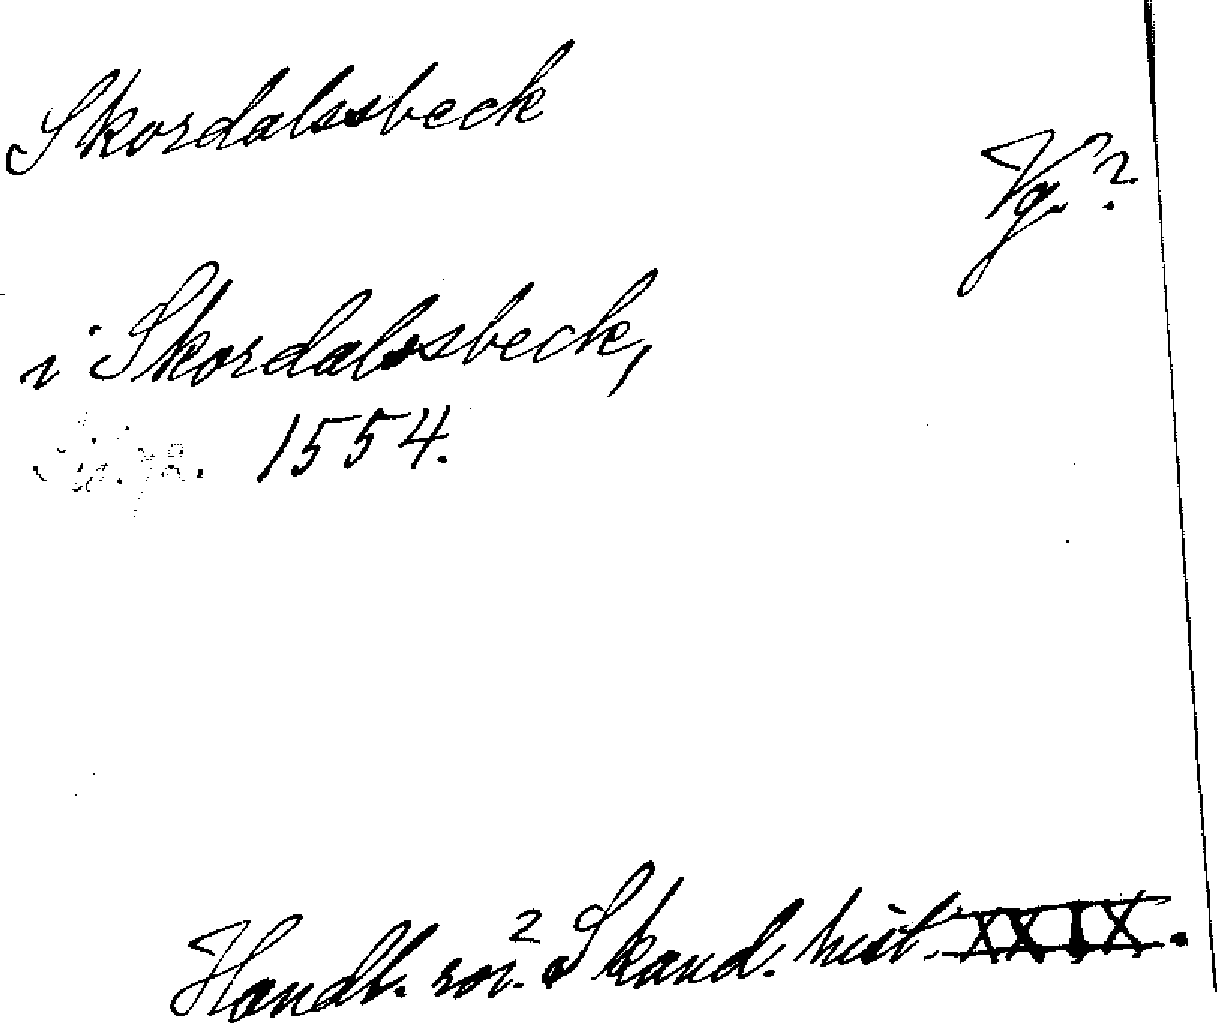 Skordalssbeck
Vg.?
i Skordalssbeck,
1554.
Handl. rör. Skand. hist. XXIX.